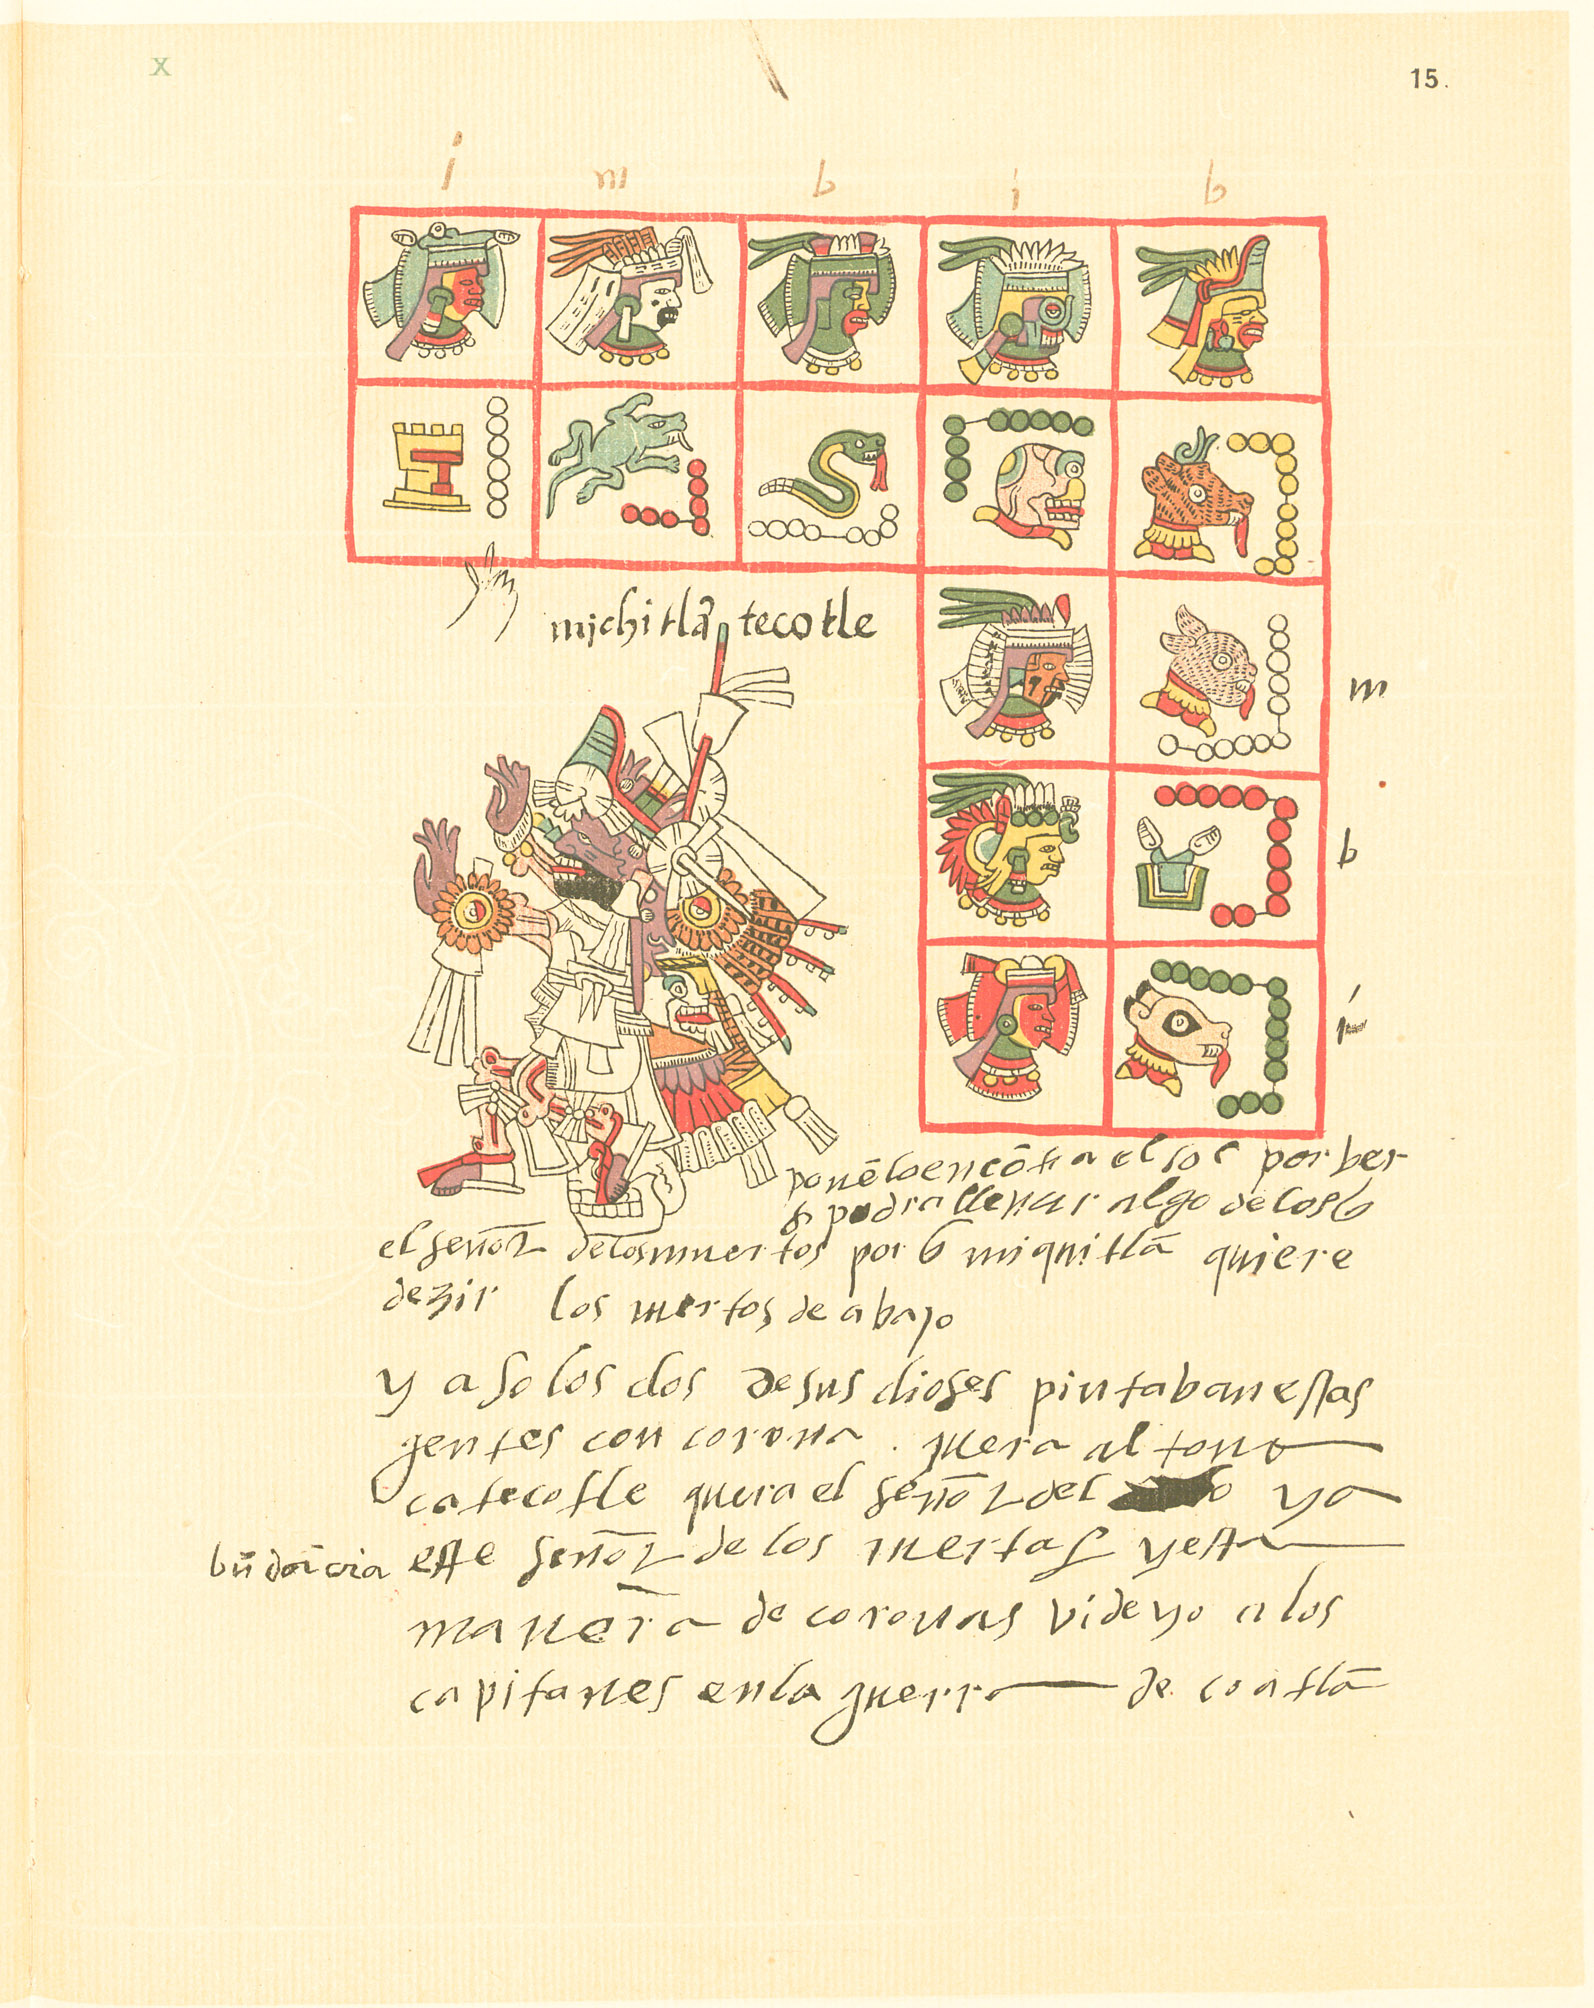 X
15.
i m b i b
michitlā tecotle
m
b
i
ponēlo encōtra el sol por ber
podra llenar algo de los q̄
el señor de los muertos por q̄ miquitlā quiere
dezir los mertos de abajo
y a solos dos de sus dioses pintaban estas
gentes con corona . quera al tona
catecotle quera el señor del y a
este señor de los mertos y esta
manera de coronas vide yo a los
capitanes en la guerra de coatlā